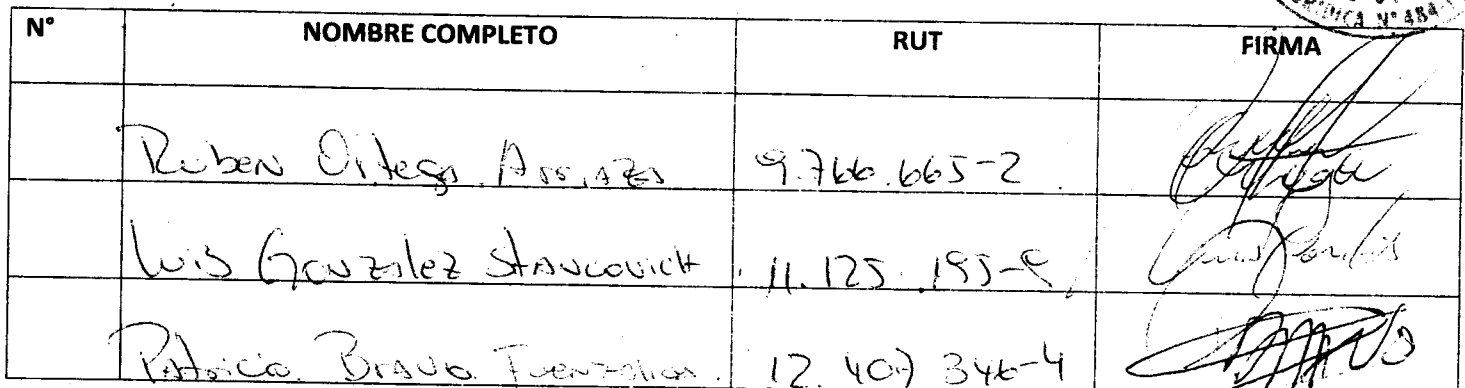 JURIDICA N° 484
N° NOMBRE COMPLETO RUT FIRMA
Ruben Ortega Arriaza 9.766.665-2
Luis González Stancovich 11.125.195-9
Patricia Bravo Fuenzalida 12.407.346-4